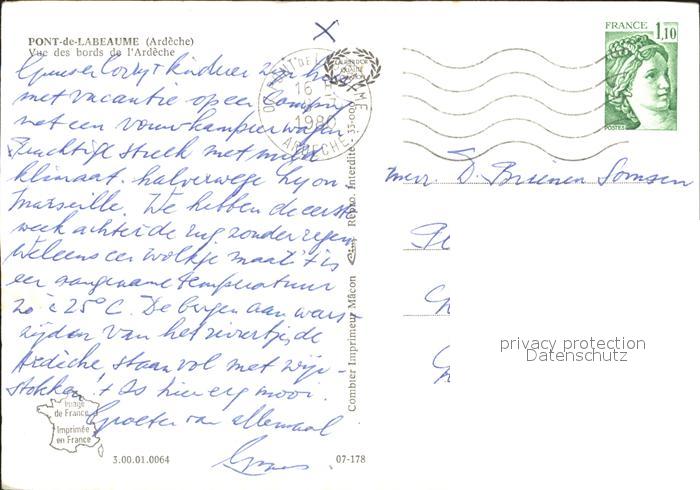 PONT-de-LABEAUME (Ardèche)
Vue des bords de l'Ardèche
kinderen zijn hier
met vacantie op een Camping
met een vouwkampeerwagen.
Prachtige streek met mild
klimaat. halverwege Lyon
Marseille. We hebben de eerste
week achter de rug zonder regen
Weleens een wolkje maar 't is
een aangename temperatuur
zo'n à 25° C. De bergen aan weers-
zijden van het riviertje de
Ardèche, staan vol met wijn-
stokken. 't Is hier erg mooi.
Groeten van allemaal
Image
de France
Imprimée
en France
3.00.01.0064
07-178
Combier Imprimeur Mâcon
Repro. Interdite
16
1980
ARDECHE
FRANCE
1,10
POSTES
mevr. D. Brienen Somsen
privacy protection
Datenschutz